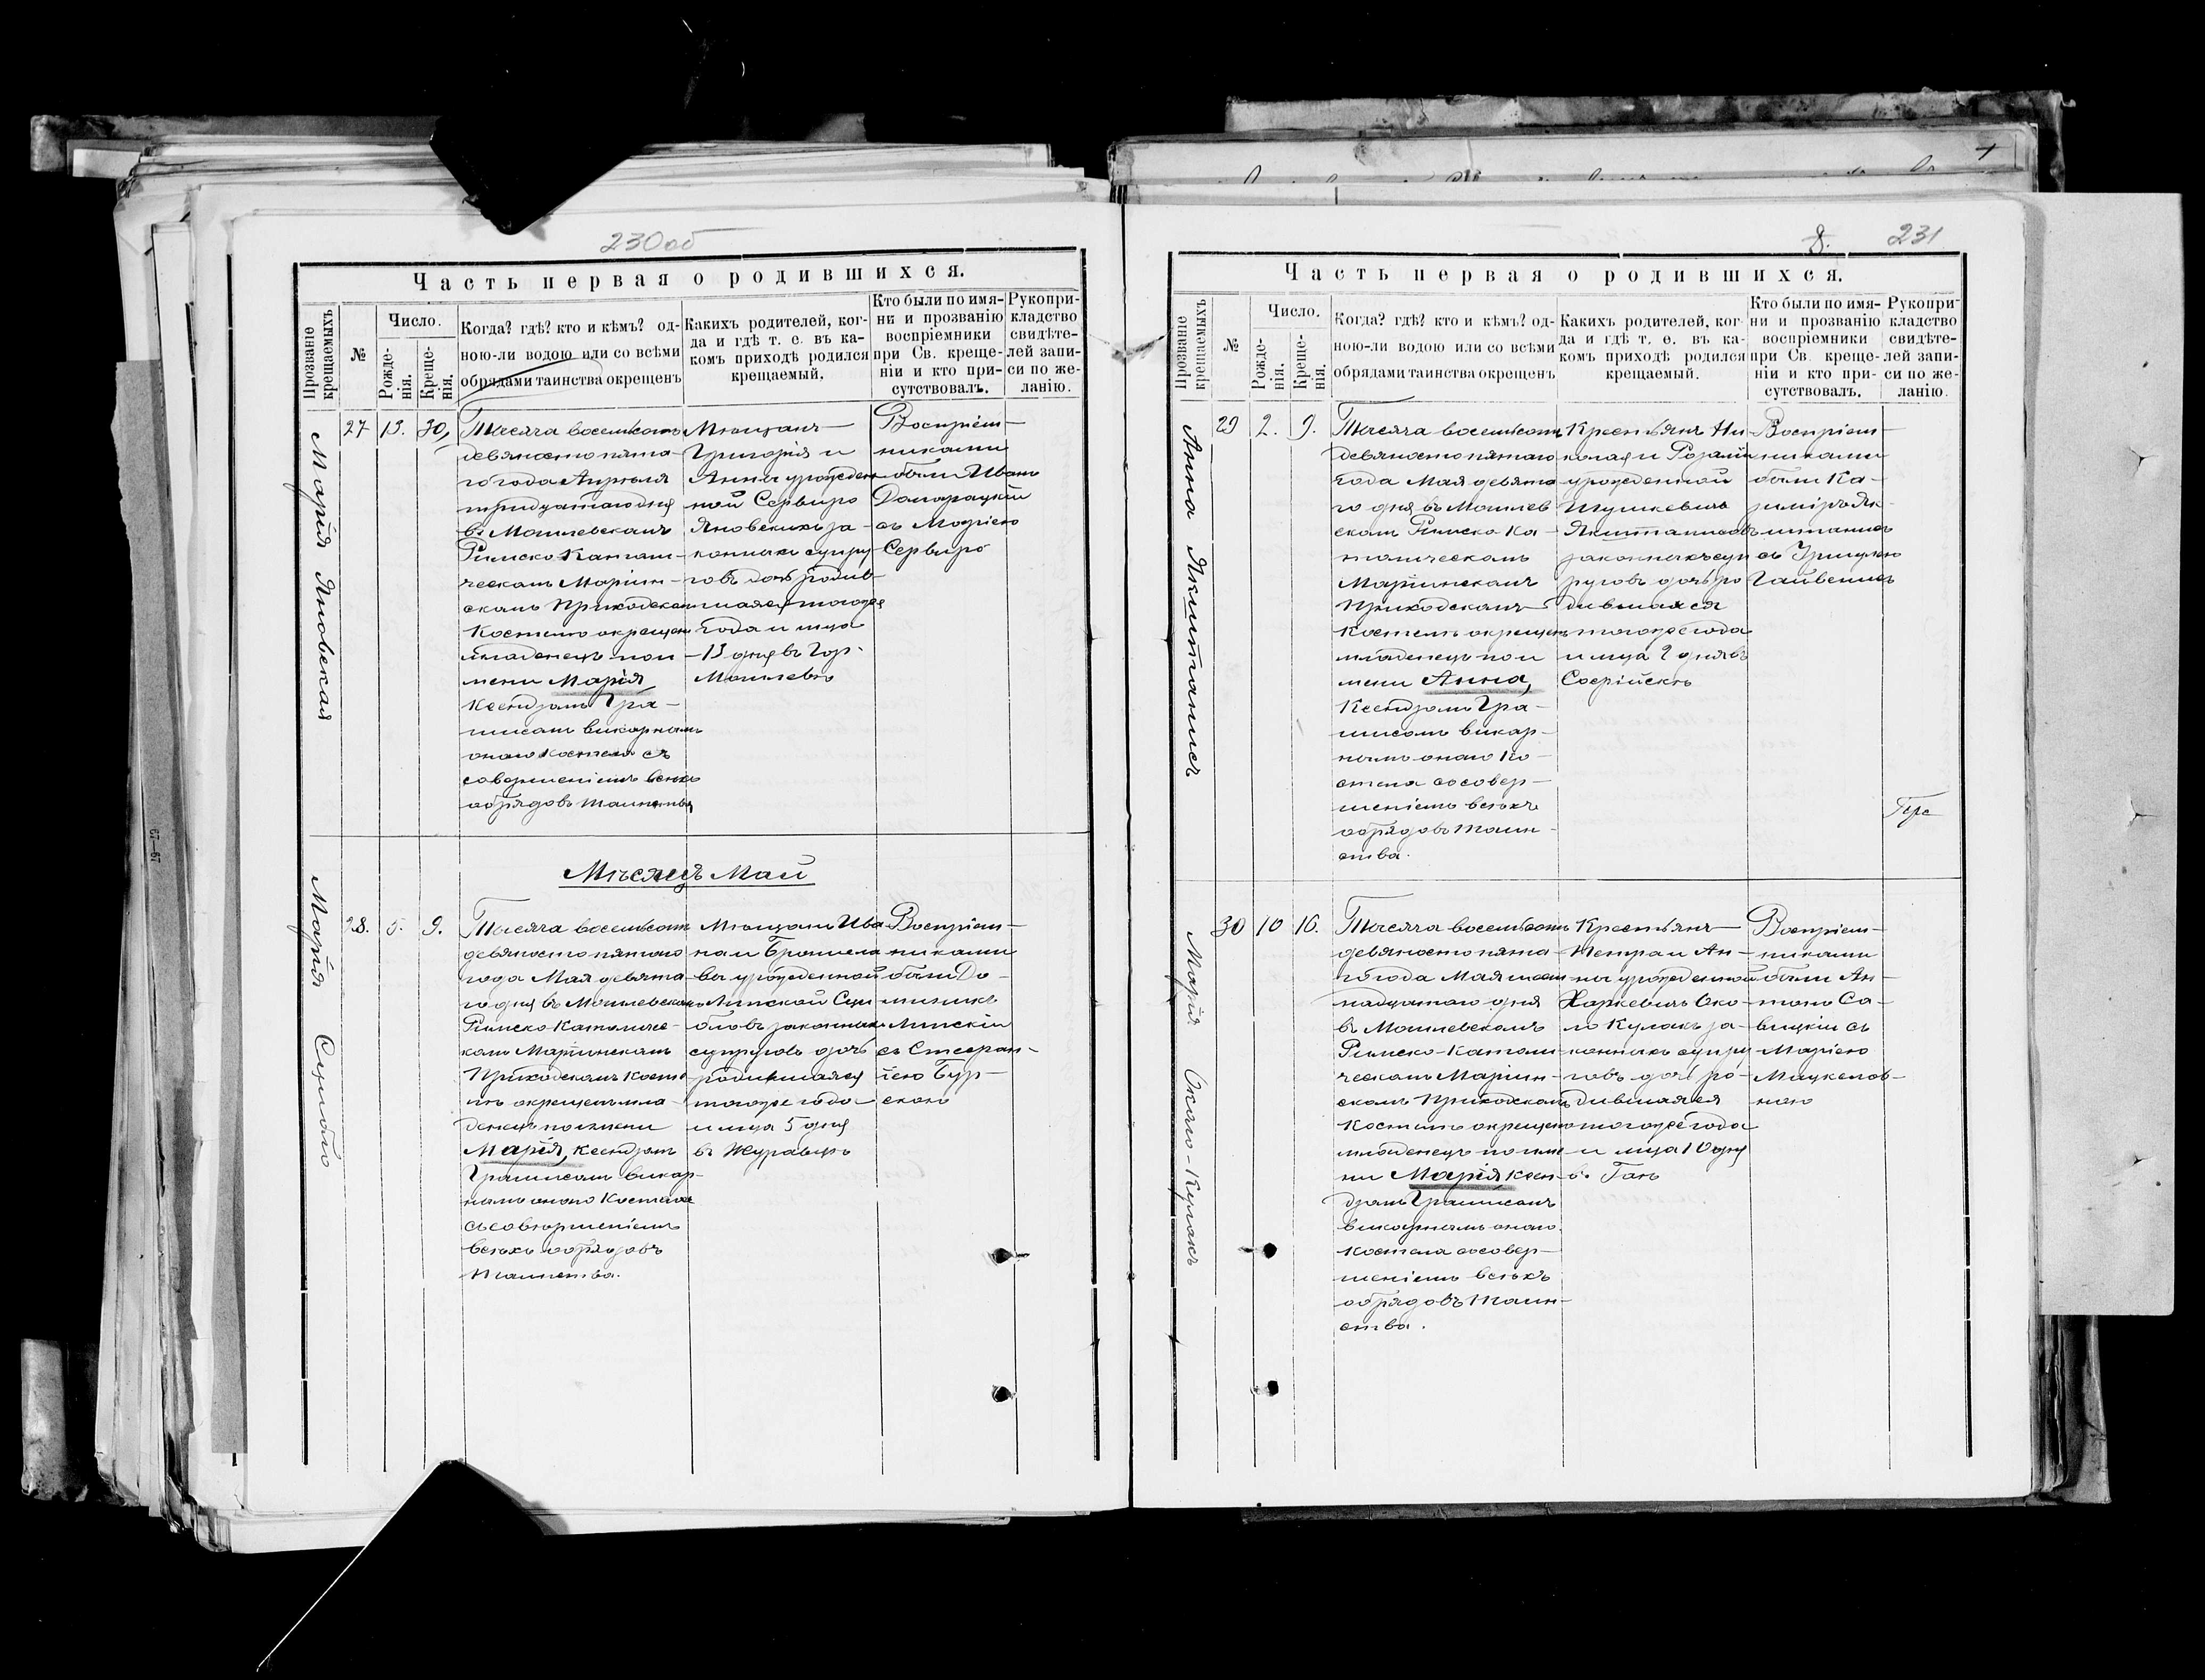 230 об
Часть первая о родившихся.
Прозваніе крещаемыхъ
№
Число.
Рожде-
нія.
Креще-
нія.
Когда? гдѣ? кто и кѣмъ? од-
ною-ли водою или со всѣми
обрядами таинства окрещенъ
Какихъ родителей, ког-
да и гдѣ т. е. въ ка-
комъ приходѣ родился
крещаемый.
Кто были по имя-
ни и прозванію
воспріемники
при Св. креще-
ніи и кто при-
сутствовалъ.
Рукопри-
кладство
свидѣте-
лей запи-
си по же-
ланію.
Марія Яновская
27
13.
30,
Тысяча восемьсотъ
девяносто пята-
го года Апрѣля
тридцатаго дня
въ Могилевскомъ
Римско Католи-
ческомъ Маріин-
скомъ Приходском
Костелѣ окрещен
младенецъ по и-
мени Марія
Ксендзомъ Гра-
лисомъ викарнымъ
онаго Костела съ
совершеніемъ всѣхъ
обрядовъ таинства
Мѣщанъ
Григорія и
Анны урожден
ной Сервиро
Яновскихъ за-
конныхъ супру-
говъ дочь родив-
шаяся тогоже
года и мца
13 дня въ Гор.
Могилевѣ
Воспріем-
никами
были Иванъ
Домарацкій
съ Маріею
Сервиро
Мѣсяцъ Май
Марія
28.
5.
9.
Тысяча восемьсотъ
девяносто пятаго
года Мая девята-
го дня въ Могилевском
Римско Католиче-
комъ Маріинскомъ
Приходскомъ Косте-
лѣ окрещенъ мла-
денецъ по имени
Марія, Ксендзомъ
Гралисомъ викар-
нымъ онаго Костела
съ совершеніемъ
всѣхъ обрядовъ
таинства.
Мѣщанъ Ива
на и Брониславы
урожденной
Липской
законныхъ
супруговъ дочь
родившаяся
тогоже года
и мца 5 дня
въ Журавцѣ
Воспріем-
никами
были До-
миникъ
Липскій
съ Стефан-
іею Бур-
скою
8.
231
Часть первая о родившихся.
Прозваніе крещаемыхъ
№
Число.
Рожде-
нія.
Креще-
нія.
Когда? гдѣ? кто и кѣмъ? од-
ною-ли водою или со всѣми
обрядами таинства окрещенъ
Какихъ родителей, ког-
да и гдѣ т. е. въ ка-
комъ приходѣ родился
крещаемый.
Кто были по имя-
ни и прозванію
воспріемники
при Св. креще-
ніи и кто при-
сутствовалъ.
Рукопри-
кладство
свидѣте-
лей запи-
си по же-
ланію.
Анна Якштанисъ
29
2.
9.
Тысяча восемьсотъ
девяносто пятаго
года Мая девята
го дня въ Могилев
скомъ Римско Ка-
толическомъ
Маріинскомъ
Приходскомъ
Костелѣ окрещенъ
младенецъ по и
мени Анна,
Ксендзомъ Гра-
лисомъ викар-
нымъ онаго Ко-
стела со совер-
шеніемъ всѣхъ
обрядовъ таин-
ства.
Крестьянъ Ни-
колая и Розаліи
урожденной
Шушкевичъ
Якштанисовъ
законныхъ суп
руговъ дочь ро
дившаяся
тогоже года
и мца 2 дня въ
Софійскѣ
Воспріем-
никами
были Ка-
зиміръ Як-
штанисъ
съ Уршулею
Марія Около-Кулакъ
30
10
16.
Тысяча восемьсотъ
девяносто пята-
го года Мая шест
надцатаго дня
въ Могилевскомъ
Римско-Католи-
ческомъ Маріин-
скомъ Приходскомъ
Костелѣ окрещенъ
младенецъ по име-
ни Марія Ксен-
дзомъ Гралисомъ
викарнымъ онаго
Костела со совер-
шеніемъ всѣхъ
обрядовъ таин-
ства.
Крестьянъ
Петра и Ан-
ны урожденной
Харкевичъ Око-
ло Кулакъ за-
конныхъ супру
говъ дочь ро-
дившаяся
тогоже года
и мца 10 дня
Воспріем-
никами
были Ан-
тонъ Са-
вицкій съ
Маріею
Мацкелов-
ною